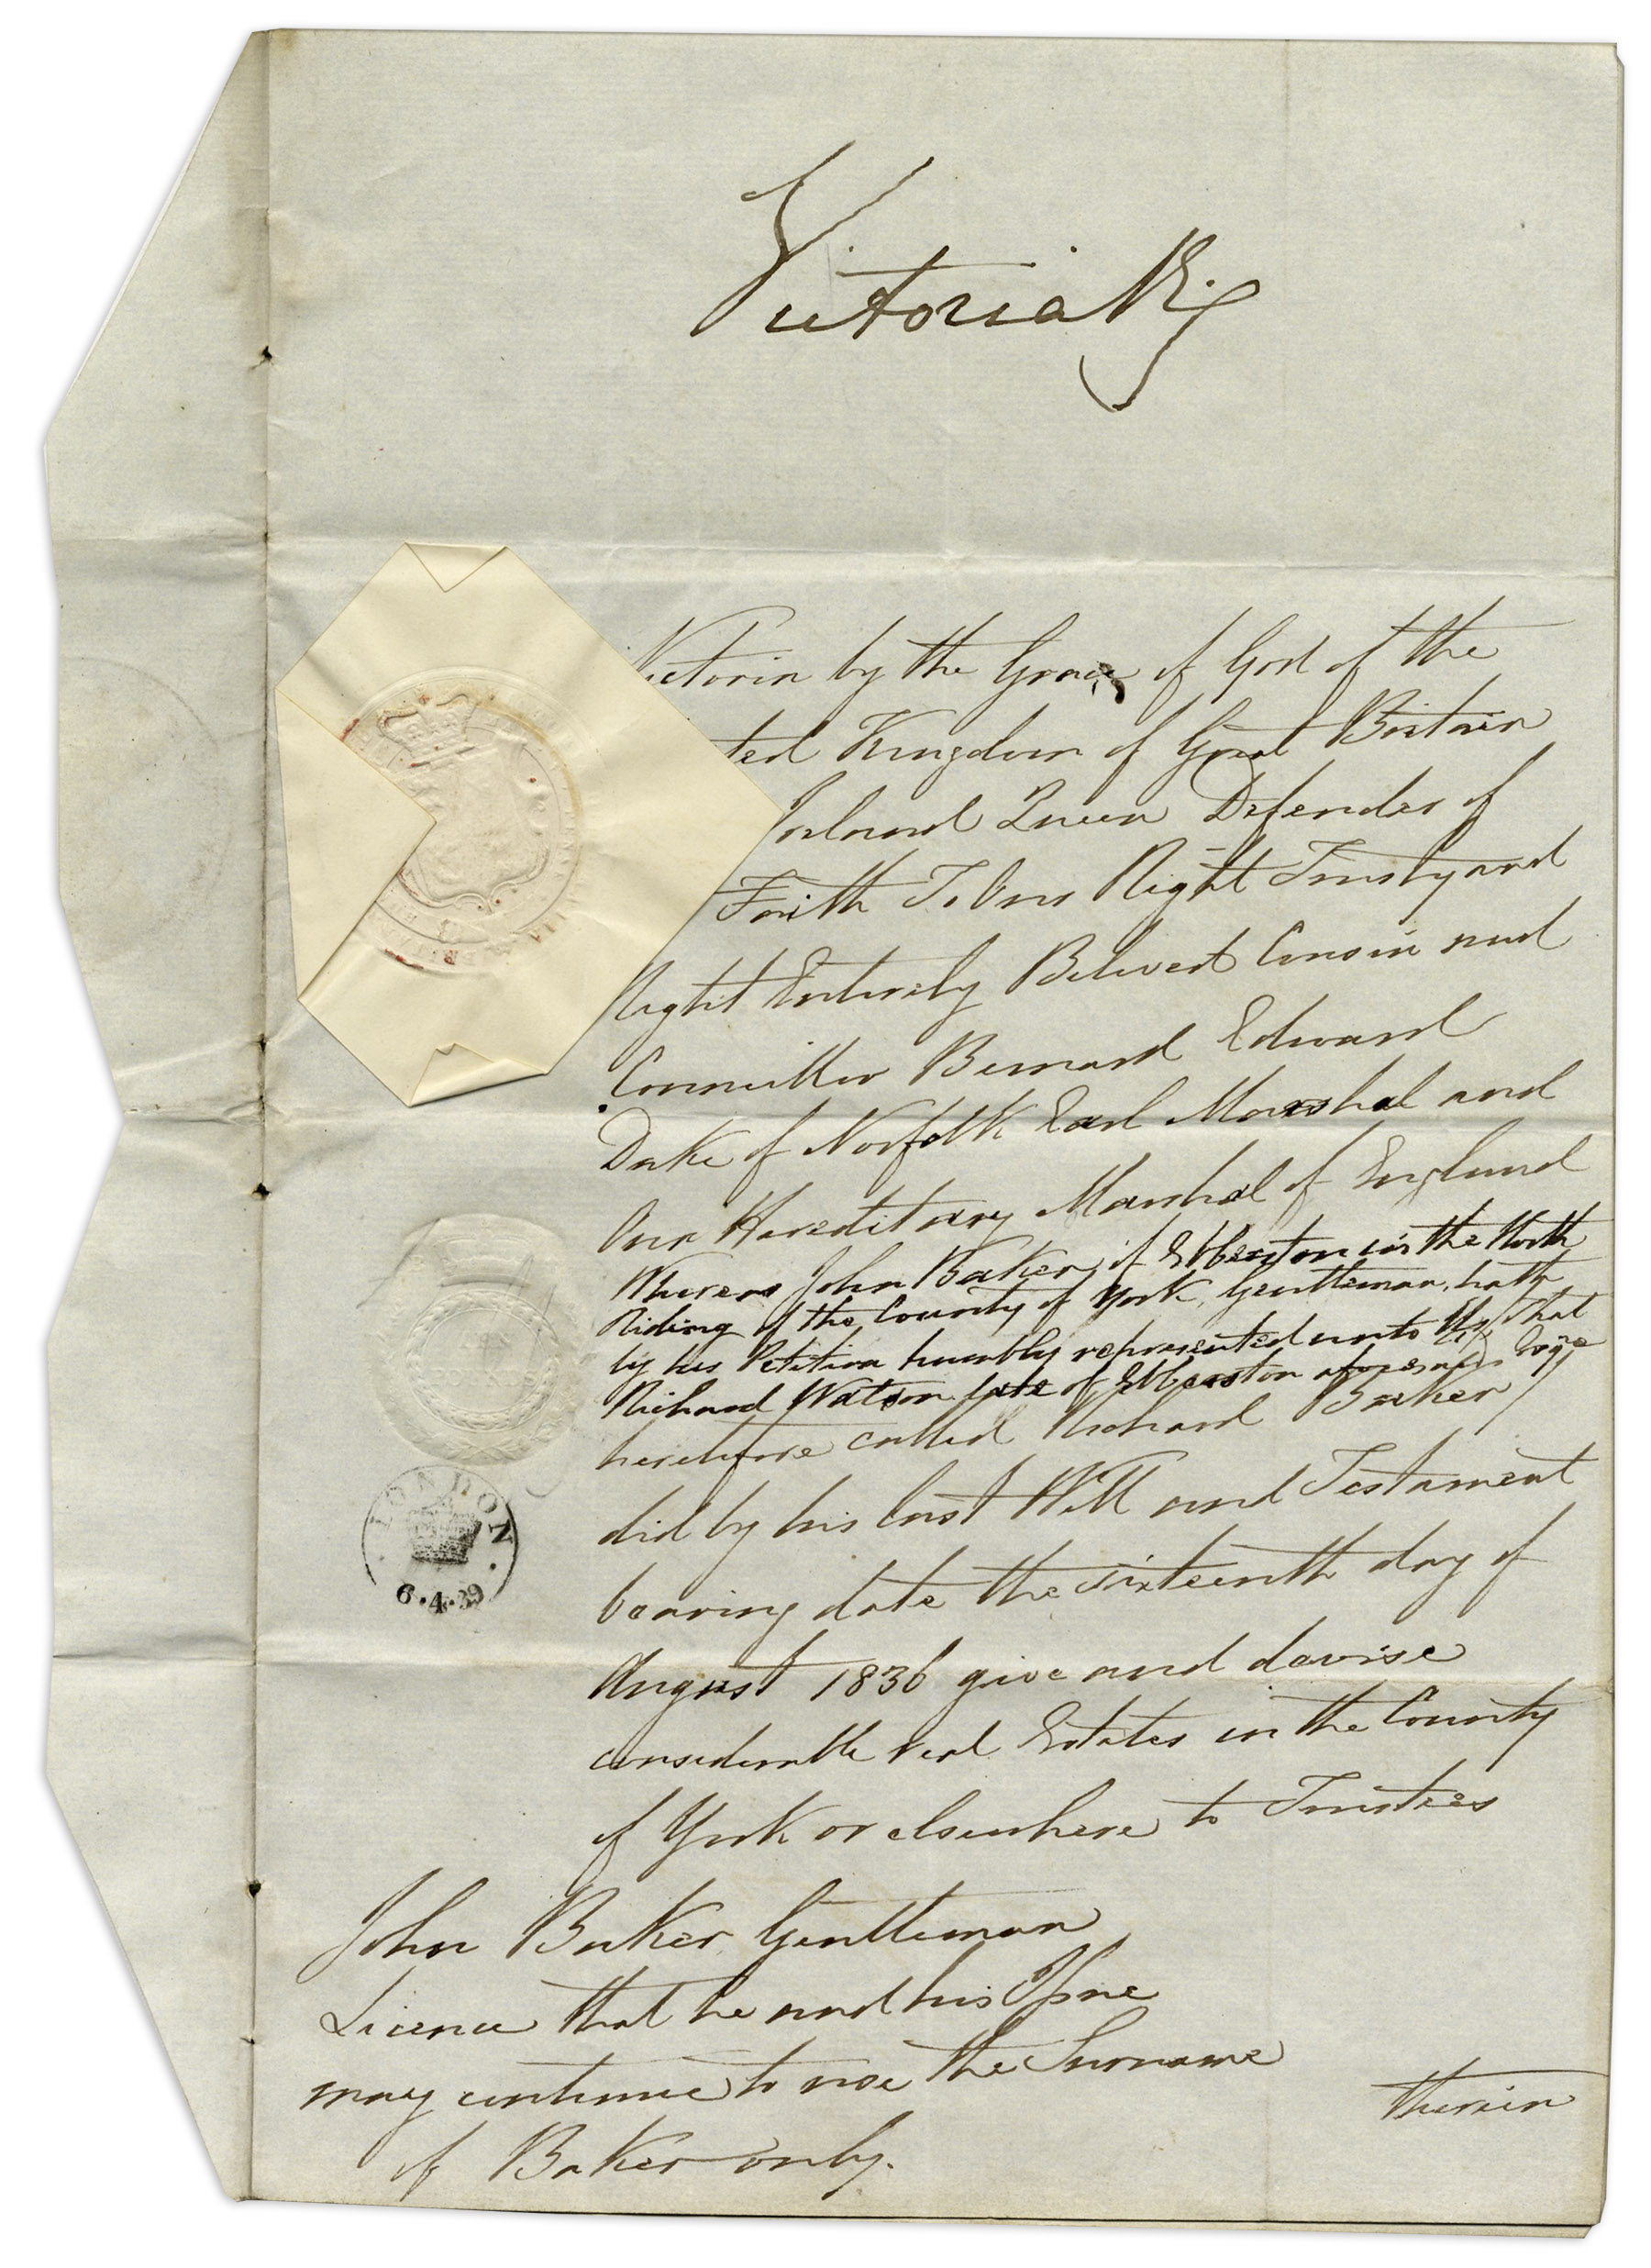 Victoria R
Victoria by the Grace of God of the
ted Kingdom of Great Britain
Ireland Queen Defender of
Faith To Our Right Trusty and
Right Entirely Beloved Cousin and
Councillor Bernard Edward
Duke of Norfolk Earl Marshal and
Our Hereditary Marshal of England
Whereas John Baker, of Ebberston in the North
Riding of the County of York, Gentleman, hath
by his Petition humbly represented unto Us, That
Richard Watson late of Ebberston aforesaid
heretofore called Richard Baker
did by his last Will and Testament
bearing date the sixteenth day of
August 1836 give and devise
considerable real Estates in the County
of York or elsewhere to Trustees
therein
LONDON
6.4.39
John Baker Gentleman
Licence that he and his Issue
may continue to use the Surname
of Baker only.